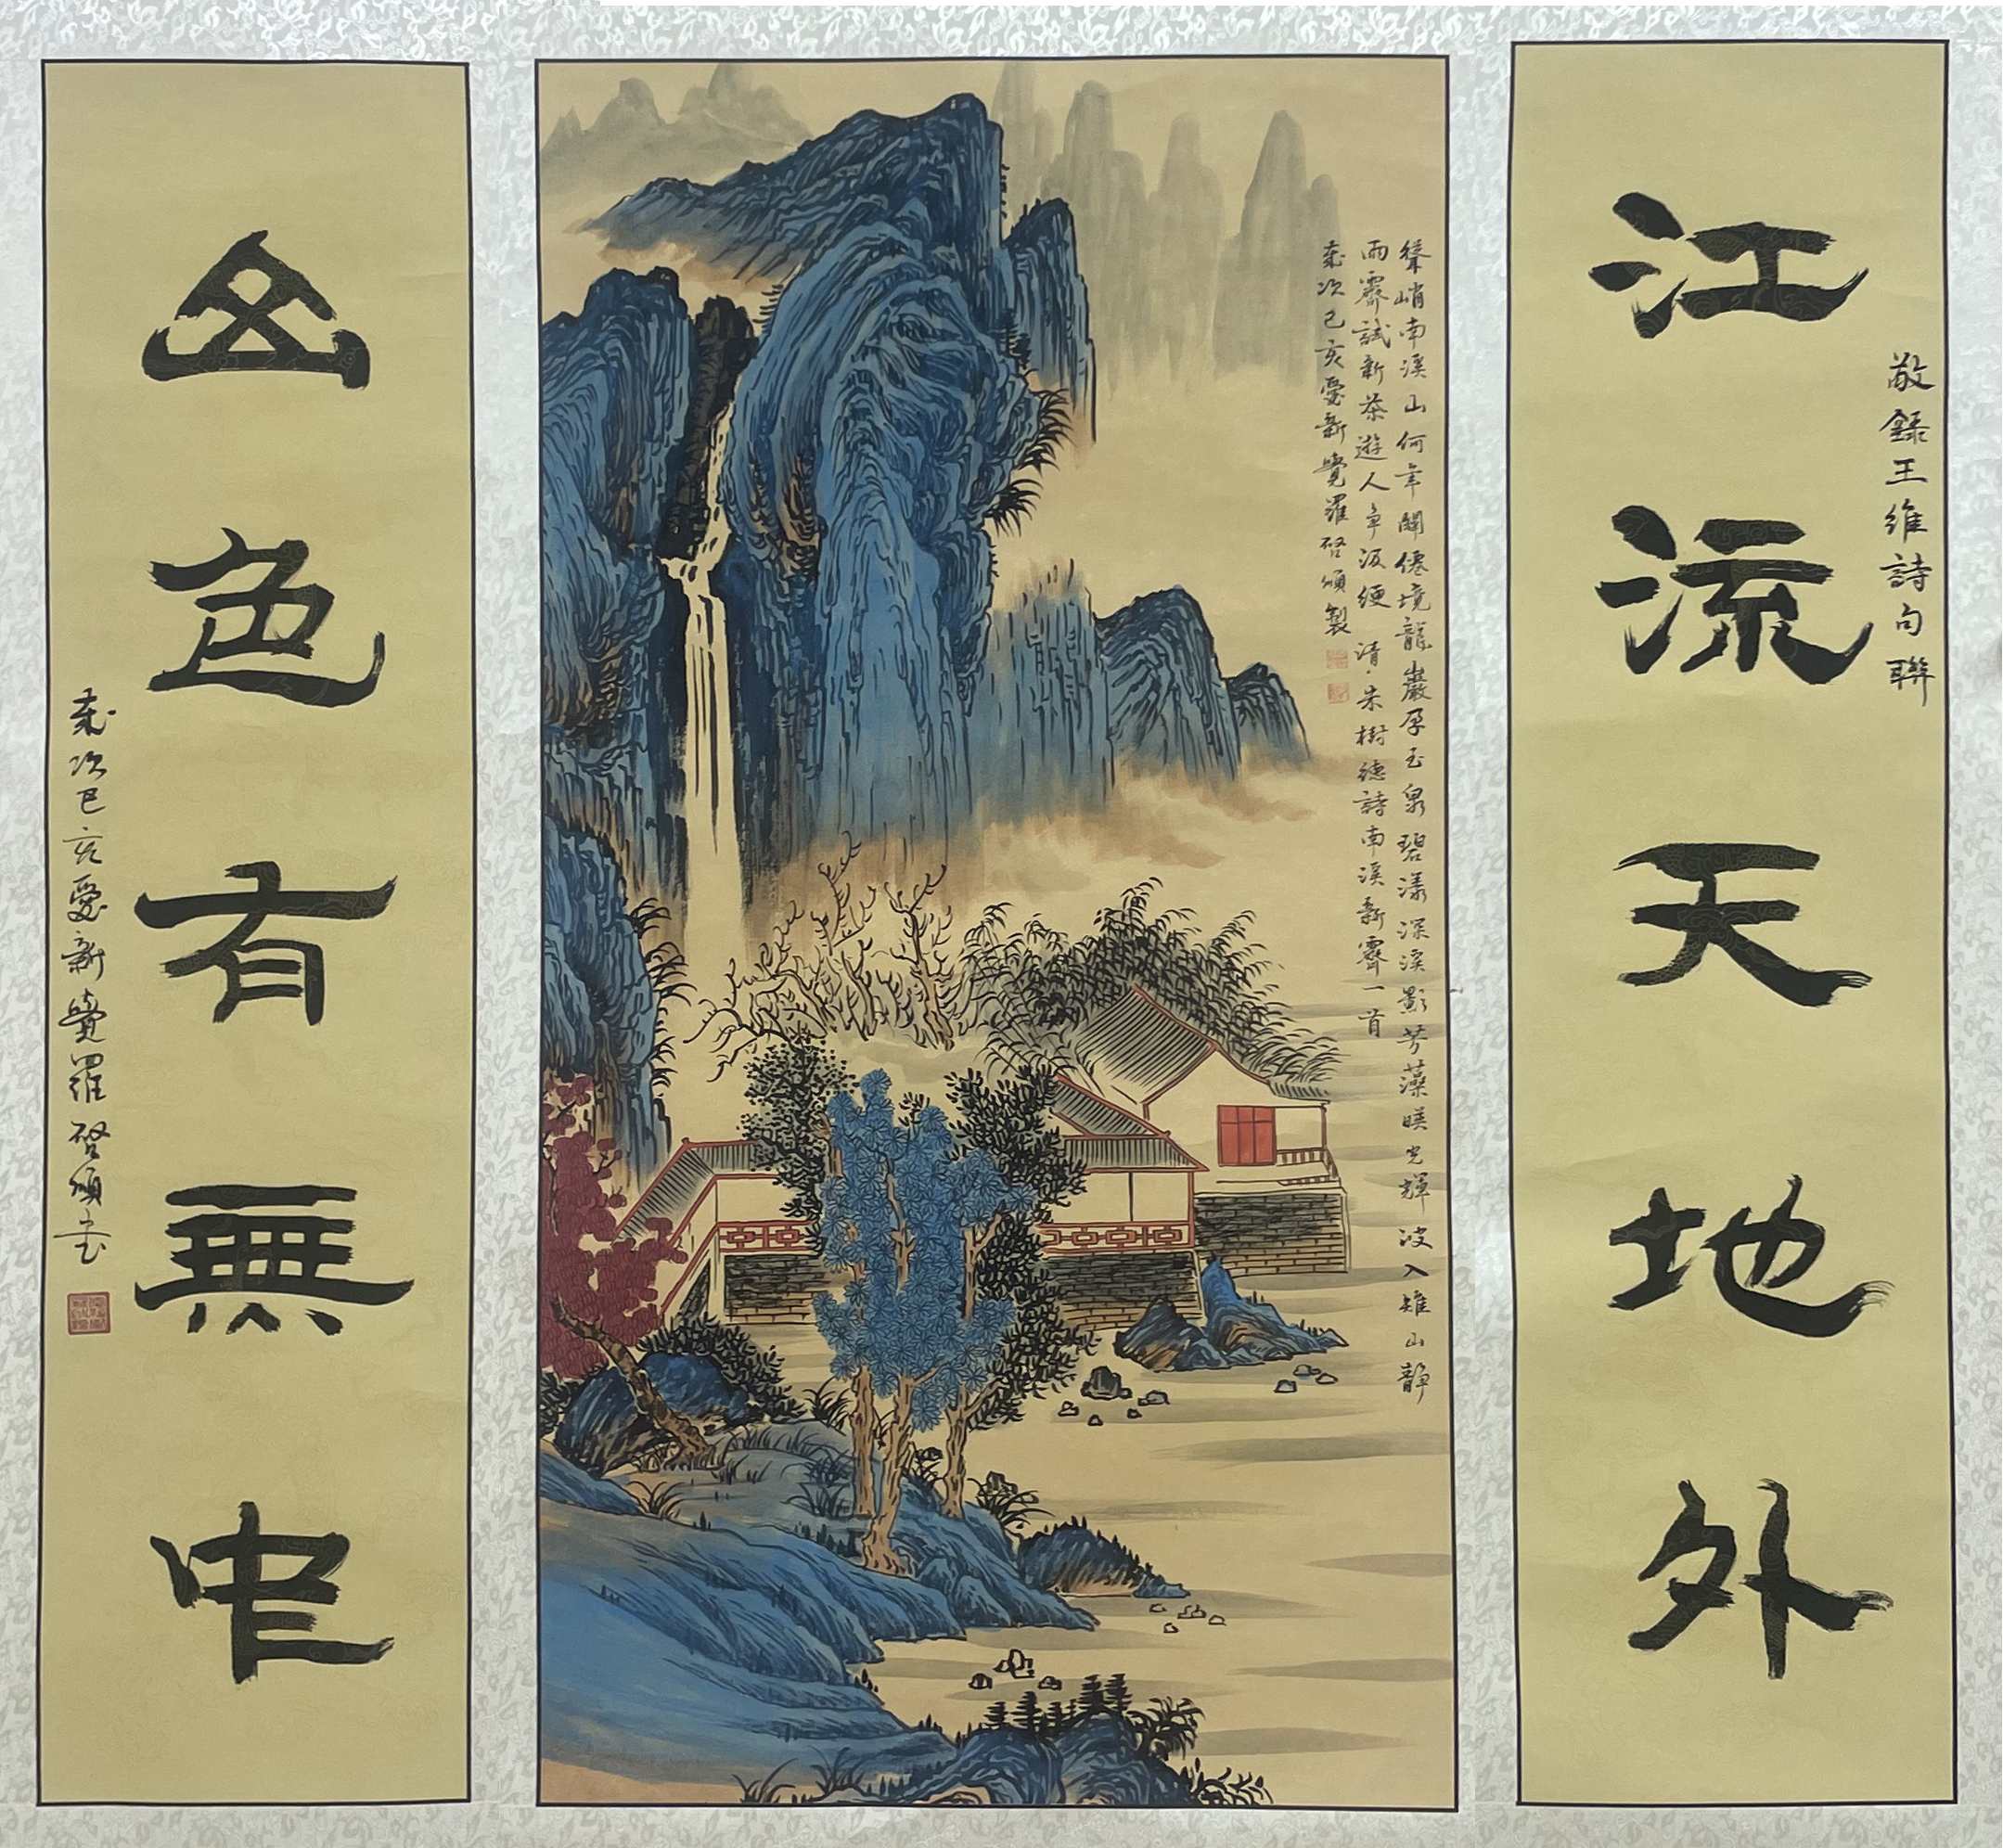 敬錄王維詩句聯
江流天地外
聳峭南溪山何年開僊境龍巖孕玉泉碧漾深溪影芳藻暎光輝波入雉山靜
雨霽試新茶遊人争汲綆 清·朱樹德詩南溪新霽一首
歲次己亥愛新覺羅啓頌製
山色有無中
歲次己亥愛新覺羅啓頌书